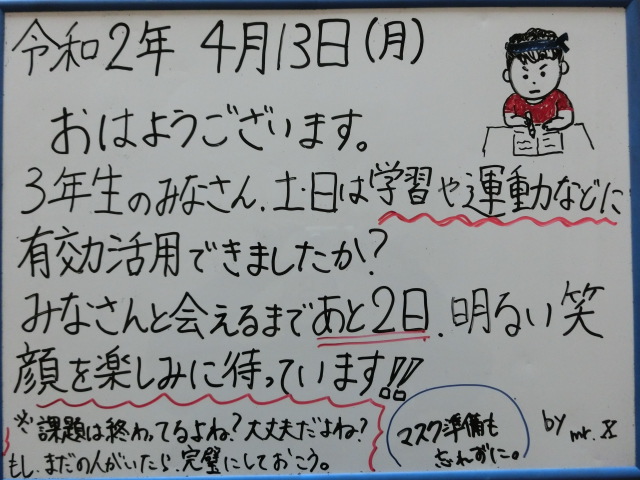 令和2年 4月13日(月)
おはようございます。
3年生のみなさん、土・日は学習や運動などに
有効活用できましたか?
みなさんと会えるまであと2日、明るい笑
顔を楽しみに待っています!!
※課題は終わってるよね?大丈夫だよね?
もし、まだの人がいたら、完璧にしておこう。
マスク準備も
忘れずに。
by mr. X